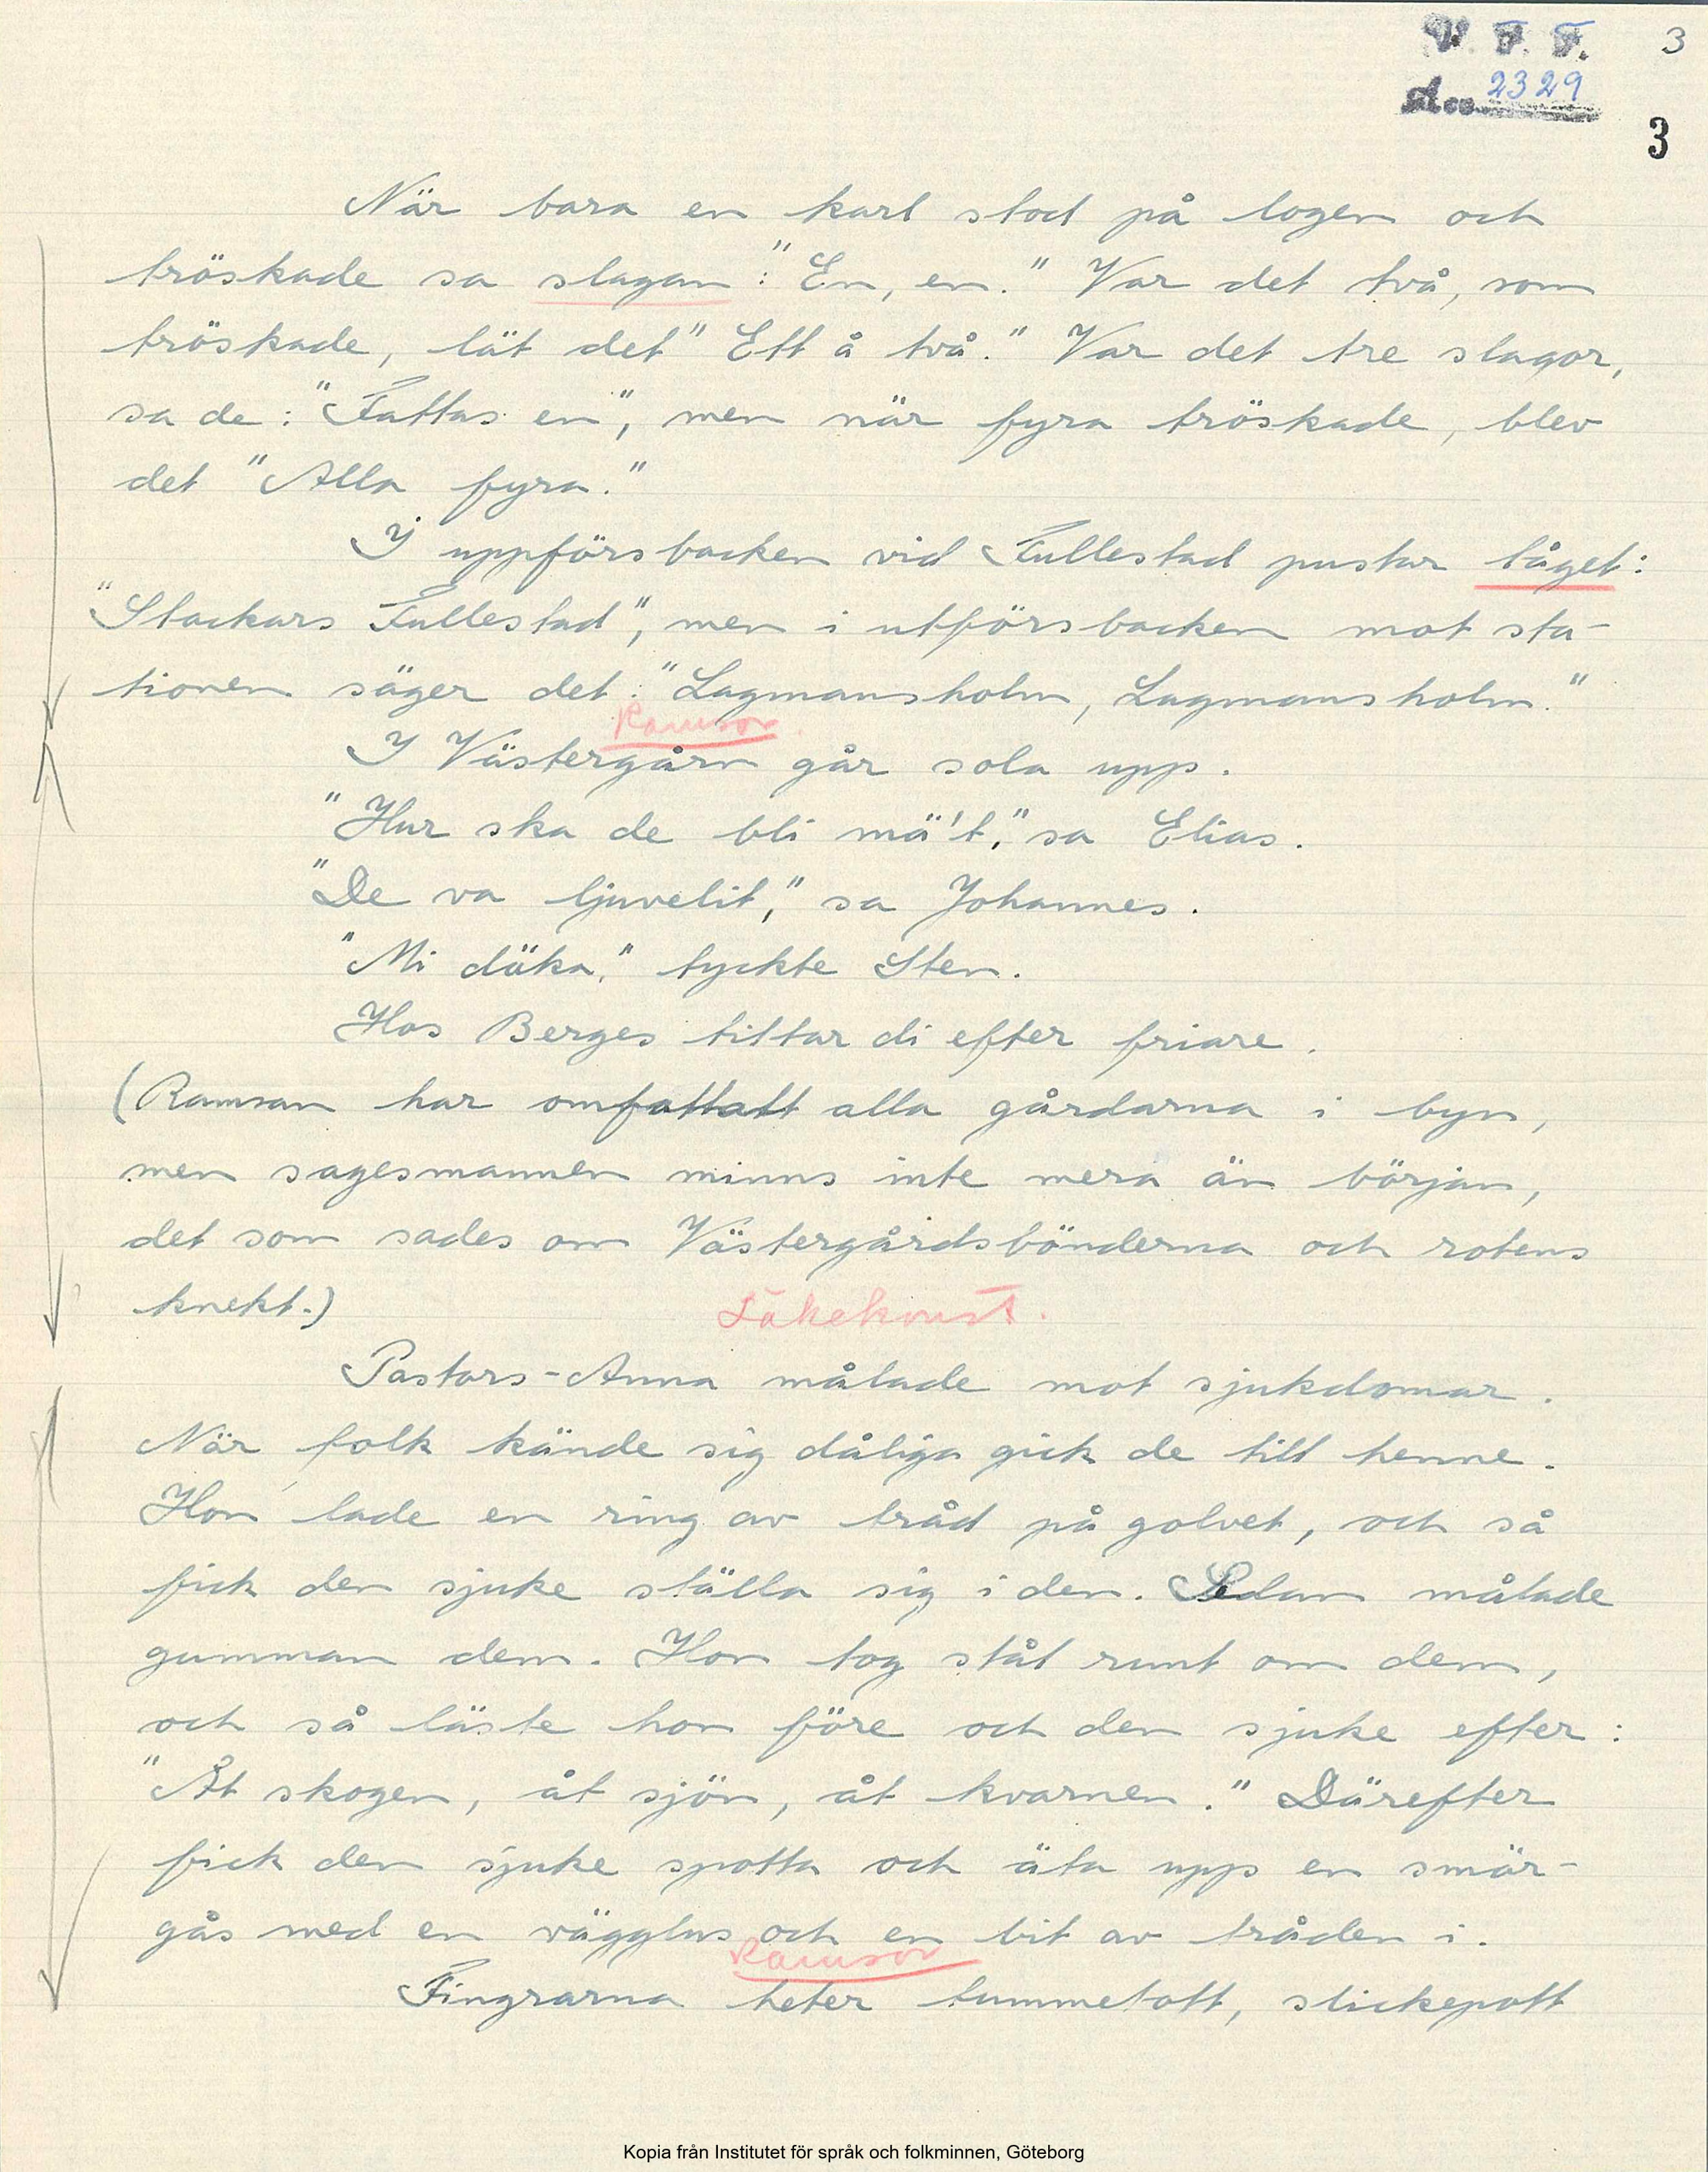 V. F. F. 3
Acc. 2329
3
När bara en karl stod på logen och
tröskade sa slagan: "En, en." Var det två, som
tröskade, lät det "Ett å två." Var det tre slagor,
sa de: "Fattas en", men när fyra tröskade, blev
det "Alla fyra."
I uppförsbacken vid Fullestad pustar tåget:
"Stackars Fullestad", men i utförsbacken mot sta-
tionen säger det: "Lagmansholm, Lagmansholm."
Ramsor.
I Västergårn går sola upp.
"Hur ska de bli mä't," sa Elias.
"De va ljuvelit," sa Johannes.
"Mi däka," tyckte Sten.
Hos Berges tittar di efter friare.
(Ramsan har omfattatt alla gårdarna i byn,
men sagesmannen minns inte mera än början,
det som sades om Västergårdsbönderna och rotens
knekt.)
Läkekonst.
Pastors-Anna målade mot sjukdomar.
När folk kände sig dåliga gick de till henne.
Hon lade en ring av tråd på golvet, och så
fick den sjuke ställa sig i den. Sedan målade
gumman dem. Hon tog stål runt om dem,
och så läste hon före och den sjuke efter:
"Åt skogen, åt sjön, åt kvarnen." Därefter
fick den sjuke spotta och äta upp en smör-
gås med en vägglus och en bit av tråden i.
Ramsor
Fingrarna heter tummetott, slickepott
Kopia från Institutet för språk och folkminnen, Göteborg